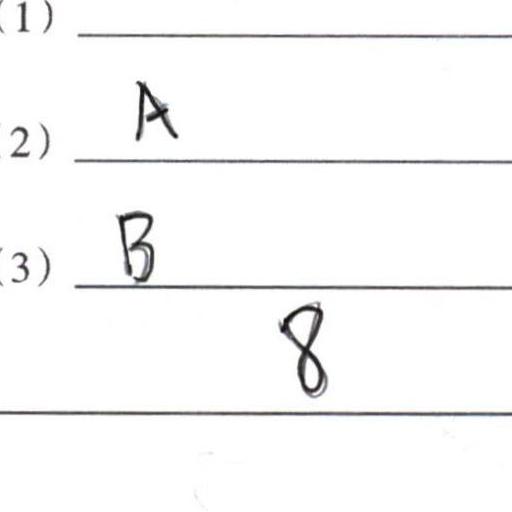 (1)
(2) A
(3) B
8